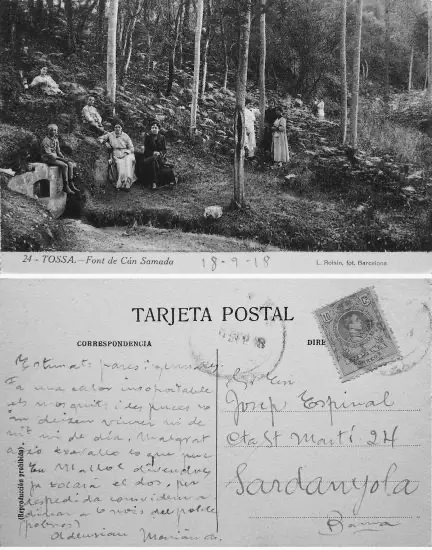 24 - TOSSA. - Font de Cán Samada
18-9-18
L. Roisin, fot. Barcelona
TARJETA POSTAL
CORRESPONDENCIA
DIRE
10
(Reproducción prohibida)
Estimats pares i germans.
Fa una calor insoportable
els mosquits i les puces no
ens deixen viure ni de
nit ni de dia. Malgrat
això treballo lo que puc
En
ja tocará el dos, per
despedida convidem a
dinar a 6 nois del poble
(pobres)
Adeusiau
Josep Espinal
Cta St Martí 24
Sardanyola